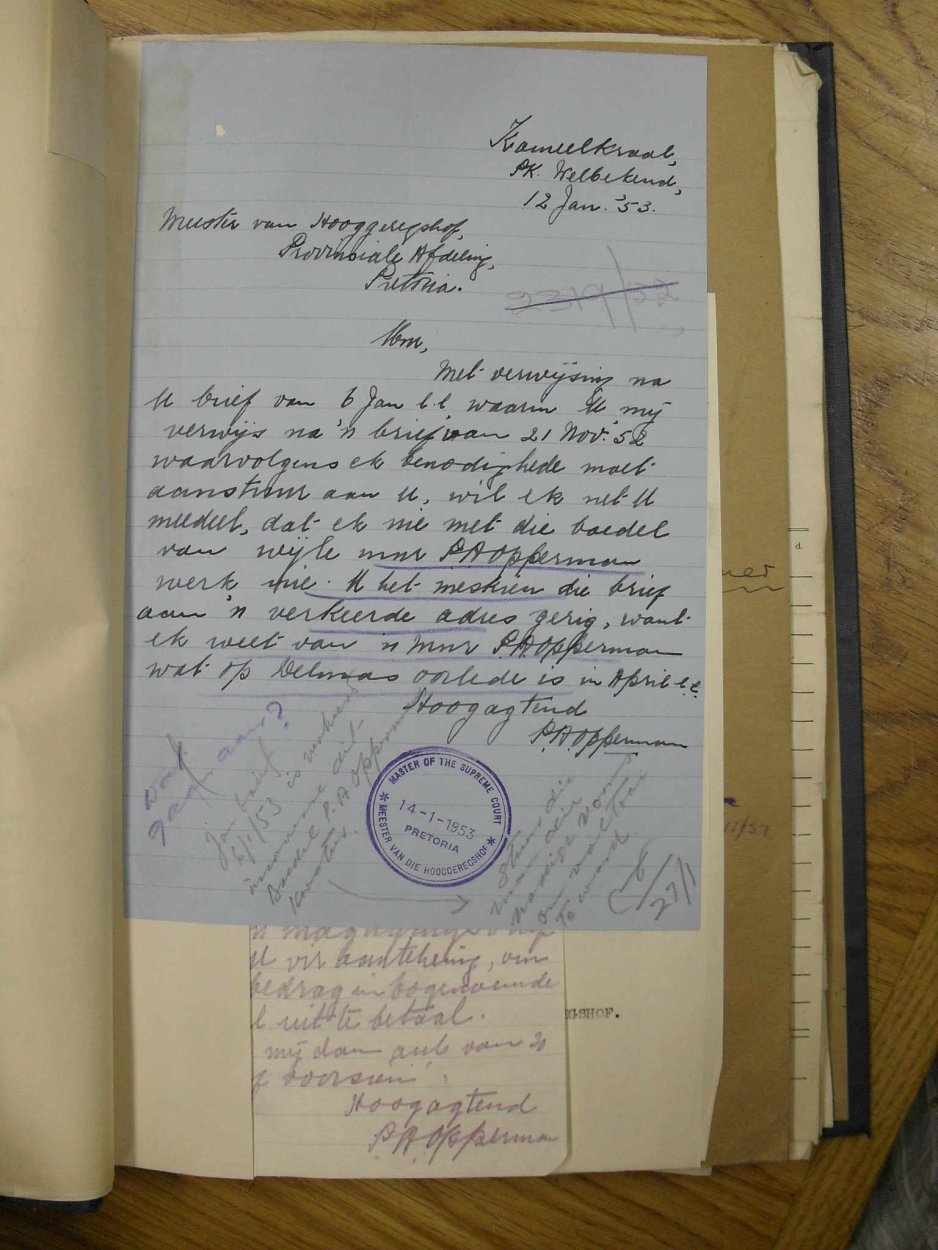 Kameelkraal,
Pk. Welbekend,
12 Jan. '53.
Meester van Hooggeregshof,
Provinsiale Afdeling,
Pretoria.
2319/52
Mnr,
Met verwijsing na
U brief van 6 Jan l.l. waarin U mij
verwijs na 'n brief van 21 Nov. '52
waarvolgens ek benodighede moet
aanstuur aan U, wil ek net U
meedeel, dat ek nie met die boedel
van wijle mnr P.A Opperman
werk nie. U het meskien die brief
aan 'n verkeerde adres gerig, want
ek weet van 'n mnr P.A Opperman
wat op Delmas oorlede is in April l.l.
Hoogagtend
P.A Opperman
Wat
gaan aan?
Jou brief
6/1/53 is verkeerd
insake die
Boedel P.A Opperman
MASTER OF THE SUPREME COURT
14-1-1953
PRETORIA
MEESTER VAN DIE HOOGGEREGSHOF
Stuur die
nodige vorms
om voltooi
te word
27/1
U vir aantekening, om
bedrag in bogenoemde
uit te betaal.
mij dan asb van 'n
voorsien.
Hoogagtend
P.A Opperman
GSHOF.
d.
11/51